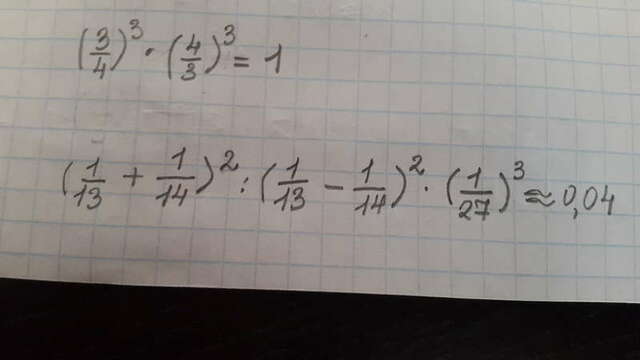 (3/4)³ · (4/3)³ = 1
(1/13 + 1/14)² : (1/13 − 1/14)² · (1/27)³ ≈ 0,04